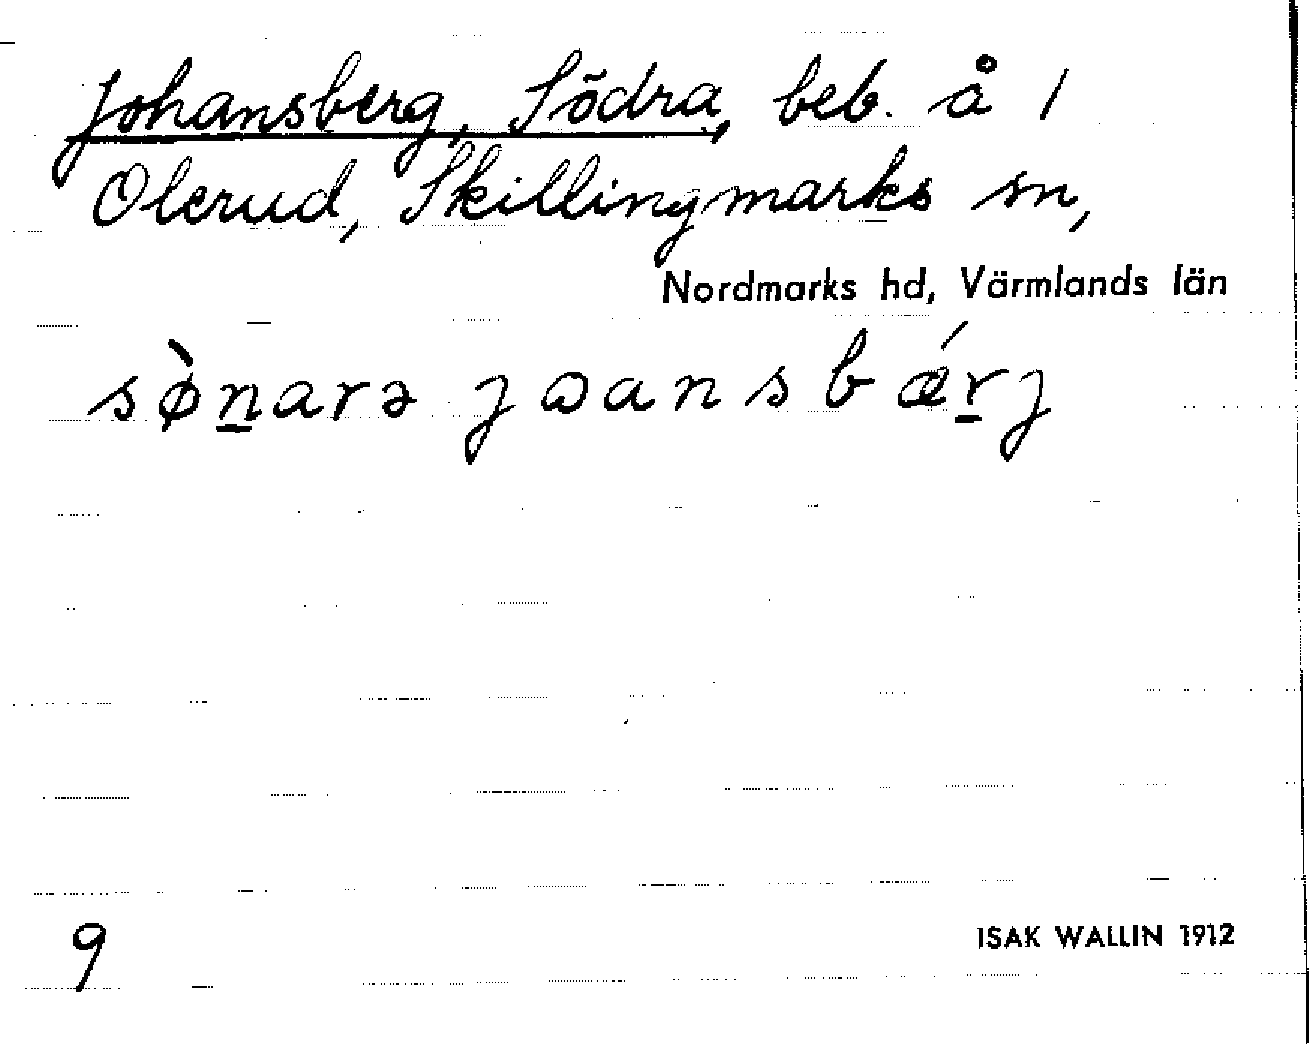 Johansberg, Södra, beb. å 1
Olerud, Skillingmarks sn,
Nordmarks hd, Värmlands län
sø̀n̲arə jɷansbǽr̲j
9
ISAK WALLIN 1912